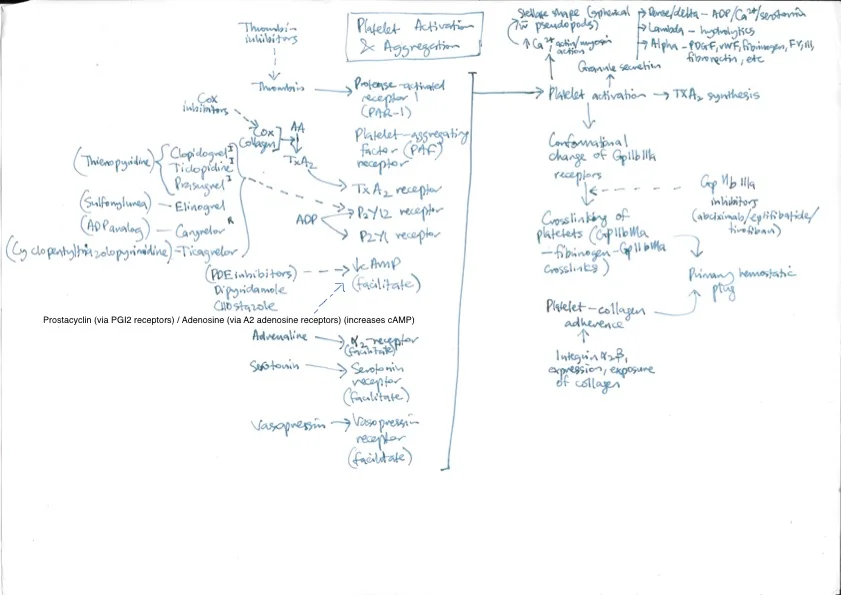 Platelet Activation
& Aggregation
Thrombin
inhibitors
Thrombin
Protease-activated
receptor 1
(PAR-1)
Cox
inhibitors
Cox
Collagen
AA
TxA2
Platelet-aggregating
factor (PAF)
receptor
(Thienopyridine)
Clopidogrel I
Ticlopidine I
Prasugrel I
(Sulfonylurea) — Elinogrel
(ADP analog) — Cangrelor R
(Cyclopentyltriazolopyrimidine) - Ticagrelor
TxA2 receptor
ADP
P2Y12 receptor
P2Y1 receptor
(PDE inhibitors)
Dipyridamole
Cilostazole
↓cAMP
(facilitate)
Prostacyclin (via PGI2 receptors) / Adenosine (via A2 adenosine receptors) (increases cAMP)
Adrenaline
α2-receptor
(facilitate)
Serotonin
Serotonin
receptor
(facilitate)
Vasopressin
Vasopressin
receptor
(facilitate)
Stellate shape (spherical
w pseudopods)
↑ Ca2+ actin/myosin
action
Dense/delta - ADP/Ca2+/serotonin
Lambda - hydrolytics
Alpha - PDGF, vWF, fibrinogen, FV, III,
fibronectin, etc
Granule secretion
Platelet activation → TXA2 synthesis
Conformational
change of GpIIbIIIa
receptors
Gp IIb IIIa
inhibitors
(abciximab/eptifibatide/
tirofiban)
Crosslinking of
platelets (GpIIbIIIa
- fibrinogen - GpIIbIIIa
crosslinks)
Primary hemostatic
plug
Platelet-collagen
adherence
Integrin α2β1
expression, exposure
of collagen